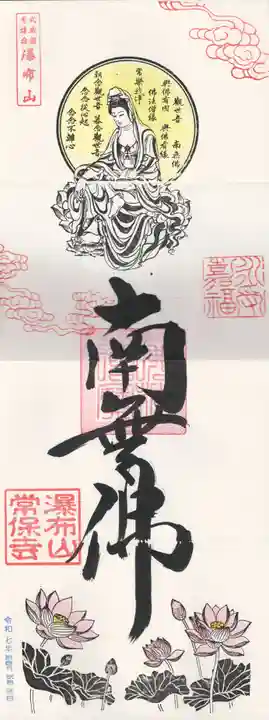 武蔵國
青梅
瀑布山
觀世音
南無佛
與佛有因
與佛有縁
佛法僧縁
常樂我淨
朝念觀世音
暮念觀世音
念念從心起
念念不離心
永享
嘉福
南無佛
瀑布山
常保寺
令和七年